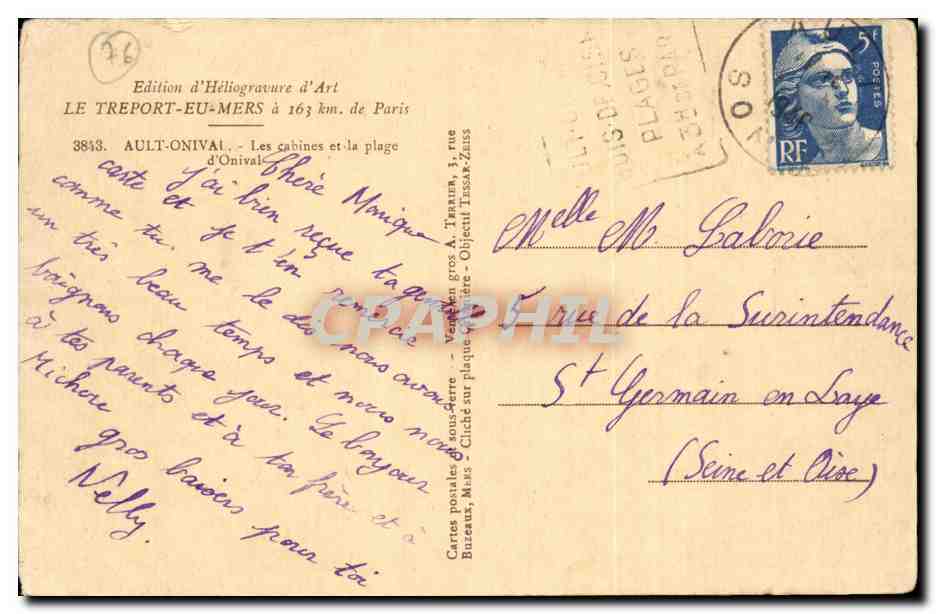 76
Edition d'Héliogravure d'Art
LE TREPORT-EU-MERS à 163 km. de Paris
3843. AULT-ONIVAL. - Les cabines et la plage
d'Onival
Chère Monique
j'ai bien reçue ta gentille
carte et je t'en remercie
comme tu me le dis nous avons
un très beau temps et nous nous
baignons chaque jour. Le bonjour
à tes parents et à ton frère et à
Michou
gros baisers pour toi
Nelly.
Cartes postales en sous-verre - Vente en gros A. TERRIER, 3, rue
Buzeaux, MERS - Cliché sur plaque Lumière - Objectif TESSAR-ZEISS
PLAGES
5F
POSTES
RF
Melle M. Laborie
5 rue de la Surintendance
St Germain en Laye
(Seine et Oise)
CPARPHIL